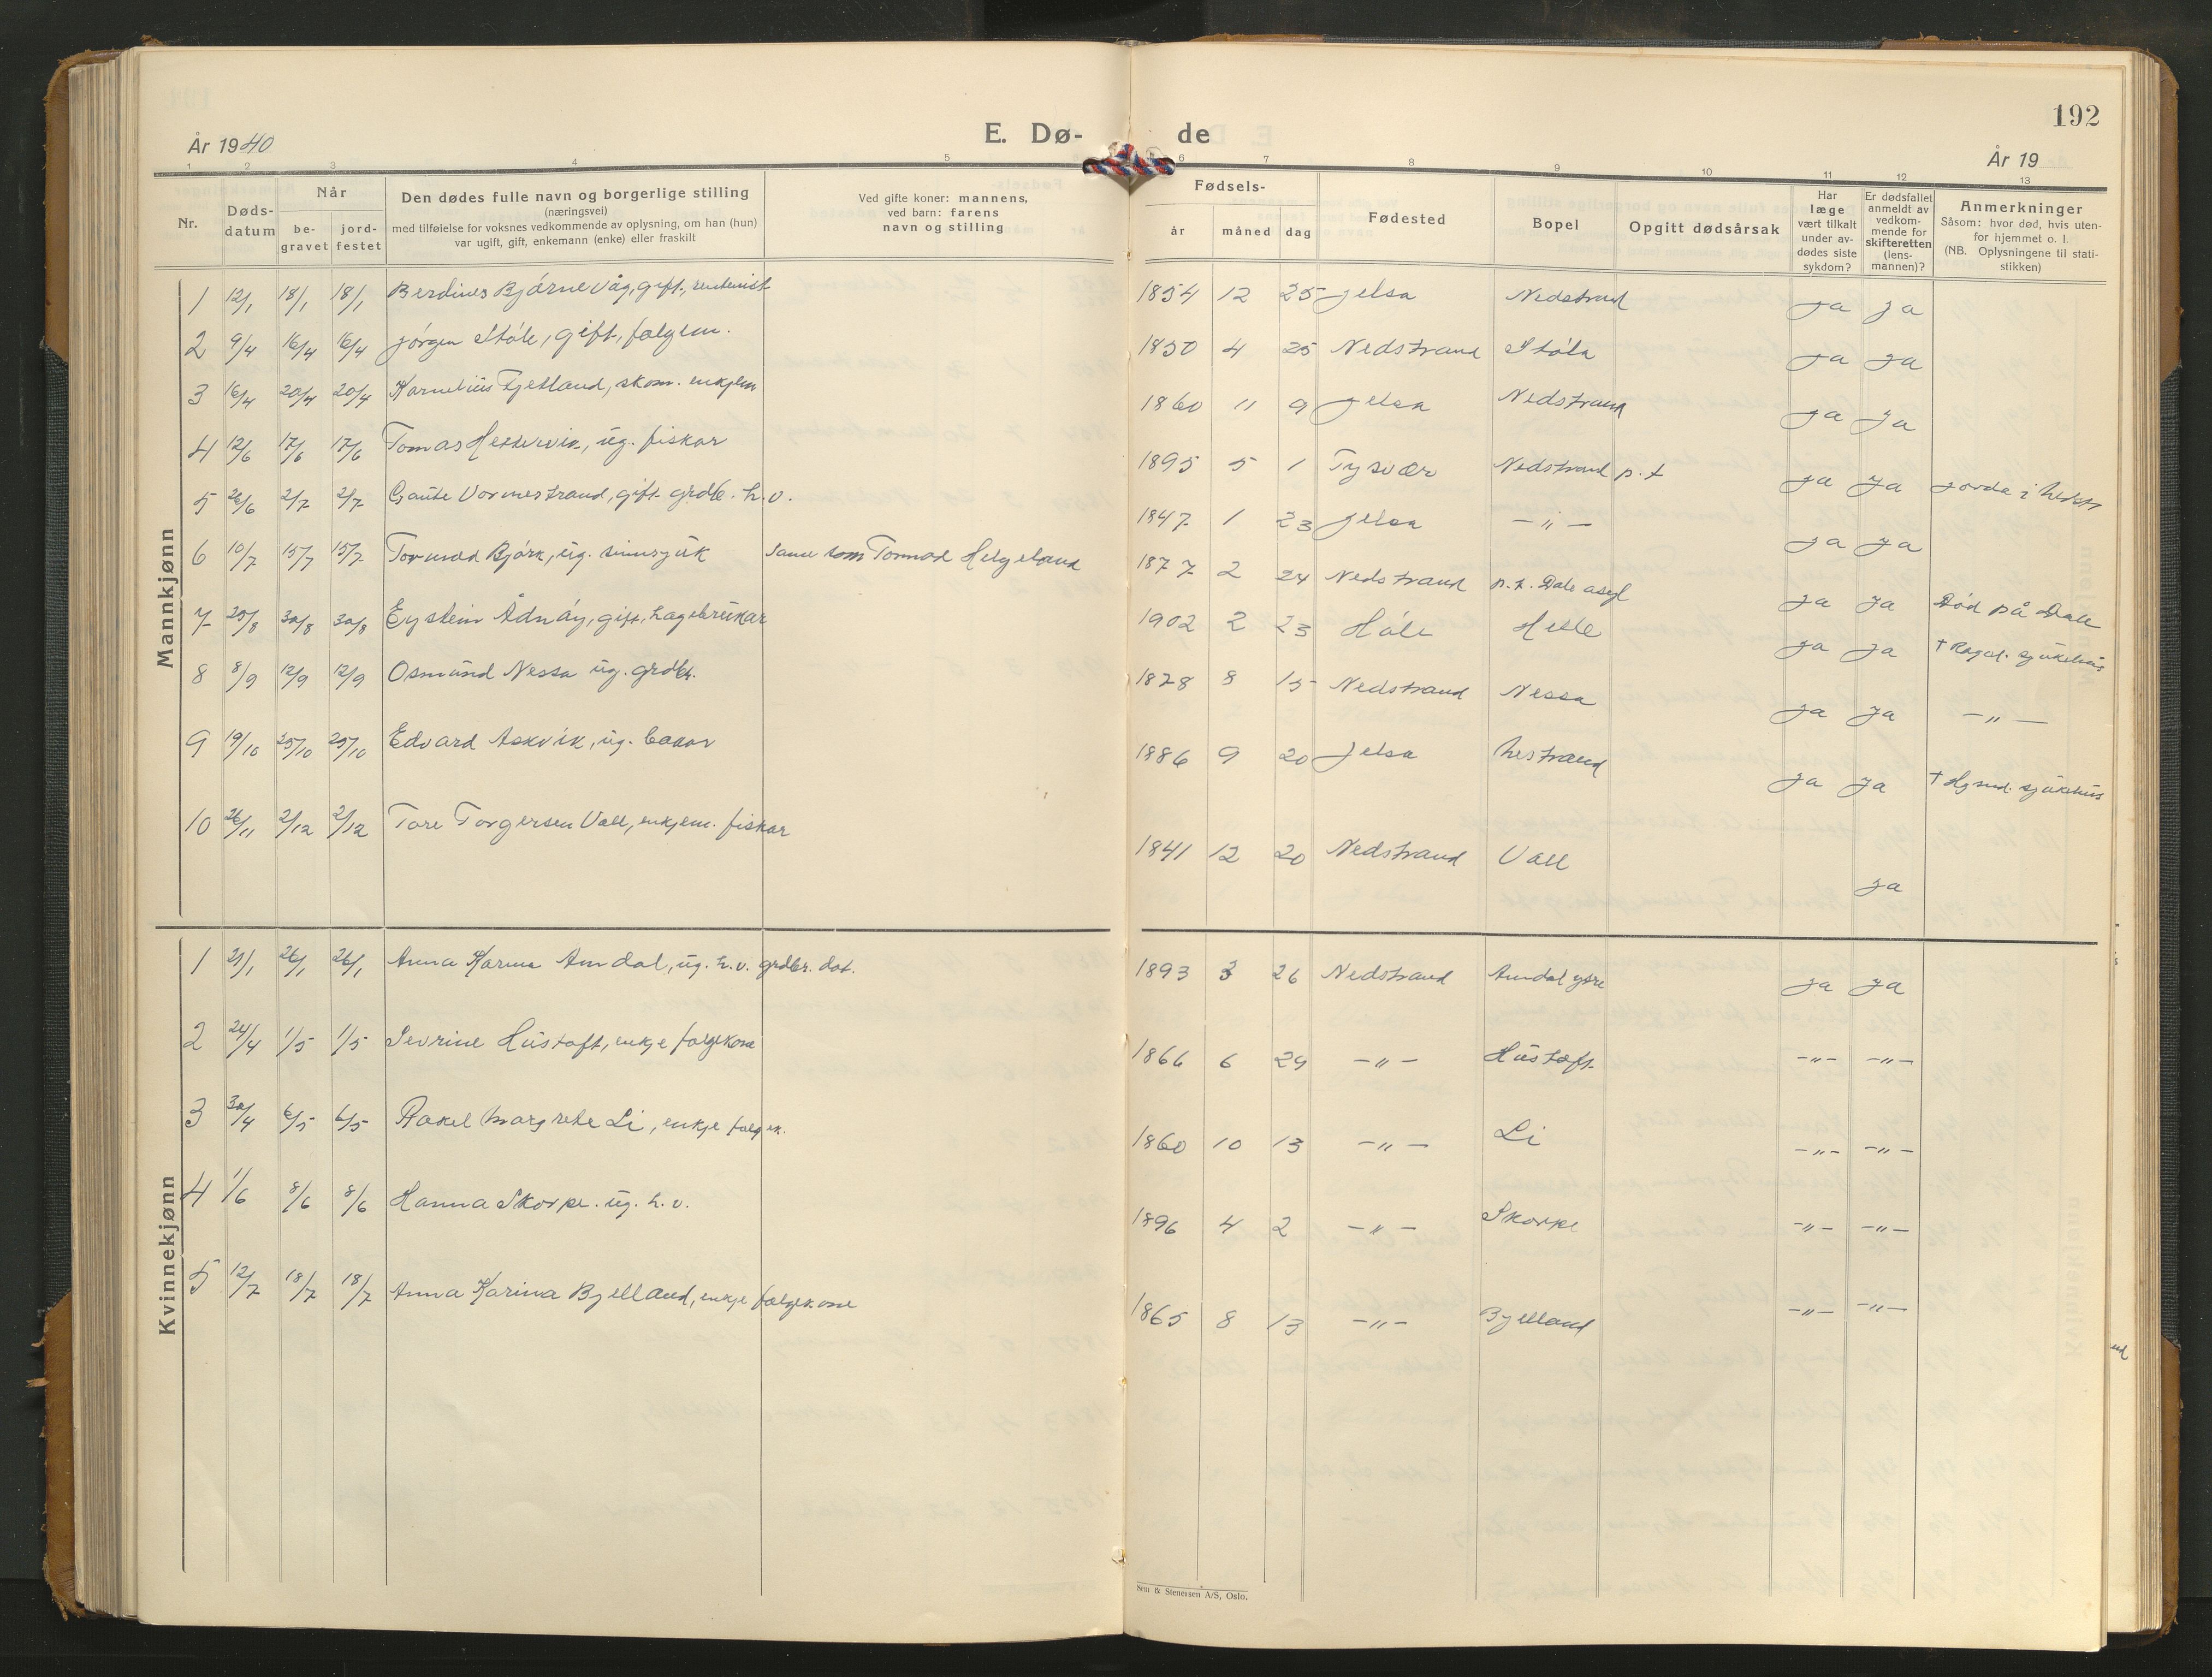 192
År 1940
E. Dø-
de
År 19
1 2 3 4 5 6 7 8 9 10 11 12 13
Nr.
Døds-
datum
Når
be-
gravet
jord-
festet
Den dødes fulle navn og borgerlige stilling
(næringsvei)
med tilføielse for voksnes vedkommende av oplysning, om han (hun)
var ugift, gift, enkemann (enke) eller fraskilt
Ved gifte koner: mannens,
ved barn: farens
navn og stilling
Fødsels-
år
måned
dag
Fødested
Bopel
Opgitt dødsårsak
Har
læge
vært tilkalt
under av-
dødes siste
sykdom?
Er dødsfallet
anmeldt av
vedkom-
mende for
skifteretten
(lens-
mannen)?
Anmerkninger
Såsom: hvor død, hvis uten-
for hjemmet o. l.
(NB. Oplysningene til stati-
stikken)
Mannkjønn
1 12/1 18/1 18/1 Berdines Bjørnevåg, gift, rentenist 1854 12 25 Jelsa Nedstrand ja ja
2 9/4 16/4 16/4 Jørgen Støle, gift, følgem. 1850 4 25 Nedstrand Støla ja ja
3 16/4 20/4 20/4 Kornelius Fjetland, skom. enkjem 1860 11 9 Jelsa Nedstrand ja ja
4 12/6 17/6 17/6 Tomas Hettervik, ug. fiskar 1895 5 1 Tysvær Nedstrand p.t ja ja jorda i
5 26/6 2/7 2/7 Gaute Vormestrand, gift grdbr. h.v. 1847 1 23 Jelsa — " — ja ja
6 10/7 15/7 15/7 Tormod Bjørk, ug. sinnsjuk Same som Tormod Helgeland 1877 2 24 Nedstrand p.t. Dale asyl ja ja Død på Dale
7 25/8 30/8 30/8 Eystein Ådnøy, gift, hagebrukar 1902 2 23 Høle Hesle ja ja † Rogal. sjukehus
8 8/9 12/9 12/9 Osmund Nessa ug. grdbr. 1878 8 15 Nedstrand Nessa ja ja — " —
9 19/10 25/10 25/10 Edvard Askvik, ug. 1886 9 20 Jelsa ja ja † Hgsud. sjukehus
10 26/11 2/12 2/12 Tore Torgersen Vall, enkjem. fiskar 1841 12 20 Nedstrand Vall ja
Kvinnekjønn
1 21/1 26/1 26/1 Anna Karina Amdal, ug. h.v. grdbr. dot. 1893 3 26 Nedstrand Amdal ytre ja ja
2 24/4 1/5 1/5 Sevrine Hustoft, enkje følgekone 1866 6 29 — " — Hustoft — " — — " —
3 30/4 6/5 6/5 Rakel Margrete Li, enkje følgek. 1860 10 13 — " — Li — " — — " —
4 1/6 8/6 8/6 Hanna Skorpe. ug. h.v. 1896 4 2 — " — Skorpe — " — — " —
5 12/7 18/7 18/7 Anna Karina Bjelland, enkje følgekone 1865 8 13 — " — Bjelland — " — — " —
Sem & Stenersen A/S, Oslo.